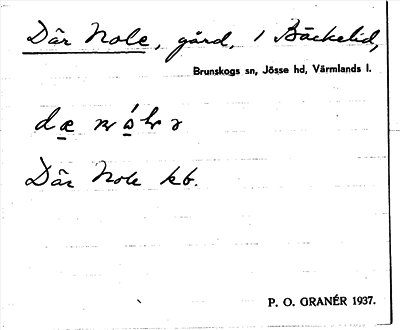 Där Nole, gård, i Bäckelid,
Brunskogs sn, Jösse hd, Värmlands l.
Där Nole kb.
P. O. GRANÉR 1937.